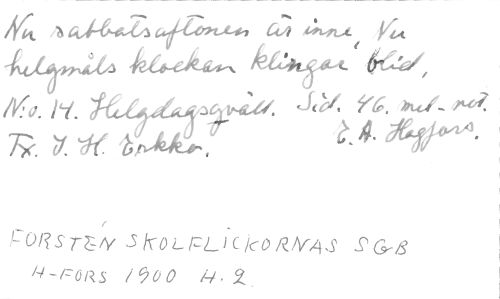 Nu sabbatsaftonen är inne, Nu
helgmåls klockan klingar blid,
N:o. 14. Helgdagsqväll. Sid. 46. mel-not.
Tx. J. H. Erkko. E. A. Hagfors.
FORSTÉN SKOLFLICKORNAS SGB
H-FORS 1900 H. 2.